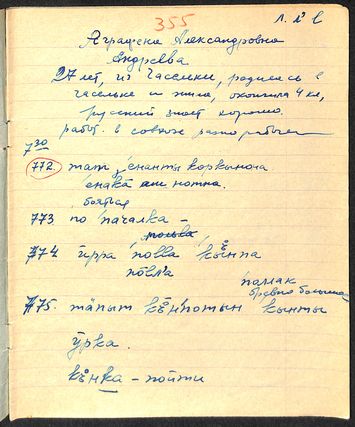 355
Аграфена Александровна
Андреева.
27 лет, из Часельки, родилась в
Часельке и жила, окончила 4 кл,
русский знает хорошо.
работ. в совхозе разнорабочей
7 30
772. тат ӄнанты коркыноча
ӄнакӓ нотна.
бояться
773 по 'пачалка –
774 ӣрра 'по̄вва 'кы̊нпа
по̄вл'а
'паллак
бревно большое
775. тӓпыт къ̊н'потын кынты
ӯрка.
къ̊нка – пойти